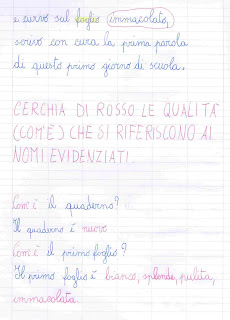 e curvo sul foglio immacolato,
scrivo con cura la prima parola
di questo primo giorno di scuola.
CERCHIA DI ROSSO LE QUALITÀ
(COM'È) CHE SI RIFERISCONO AI
NOMI EVIDENZIATI.
Com'è il quaderno?
Il quaderno è nuovo
Com'è il primo foglio?
Il primo foglio è bianco, splende, pulita,
immacolata.